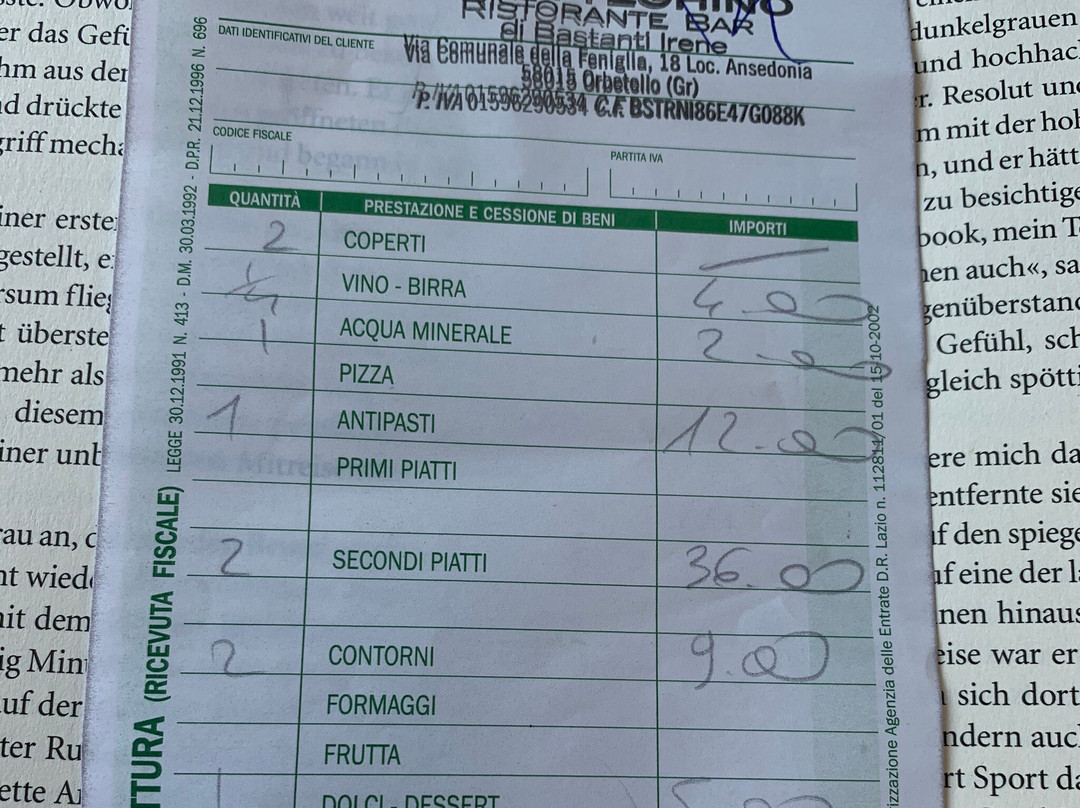 RISTORANTE BAR
di Bastanti Irene
DATI IDENTIFICATIVI DEL CLIENTE
Via Comunale della Feniglia, 18 Loc. Ansedonia
58015 Orbetello (Gr)
P. IVA 01596290534 C.F. BSTRNI86E47G088K
CODICE FISCALE
PARTITA IVA
QUANTITÀ PRESTAZIONE E CESSIONE DI BENI IMPORTI
2 COPERTI
1/4 VINO - BIRRA 4.00
1 ACQUA MINERALE 2.00
PIZZA
1 ANTIPASTI 12.00
PRIMI PIATTI
2 SECONDI PIATTI 36.00
2 CONTORNI 9.00
FORMAGGI
FRUTTA
DOLCI - DESSERT
TTURA (RICEVUTA FISCALE) LEGGE 30.12.1991 N. 413 - D.M. 30.03.1992 - D.P.R. 21.12.1996 N. 696
rizzazione Agenzia delle Entrate D.R. Lazio n. 112811/01 del 15/10-2002
er das Gefü
hm aus der
nd drückte
griff mecha
iner erster
gestellt, e
rsum flieg
t überste
mehr als
diesem
iner unb
rau an, d
nt wiede
mit dem
ig Min
uf der
ter Ru
ette A
dunkelgrauen
und hochhac
r. Resolut und
m mit der hoh
n, und er hätt
zu besichtige
book, mein T
nen auch«, sa
genüberstand
Gefühl, sch
gleich spötti
ere mich da
entfernte sie
uf den spiege
uf eine der la
nen hinaus
eise war er
sich dort
ndern auch
rt Sport da